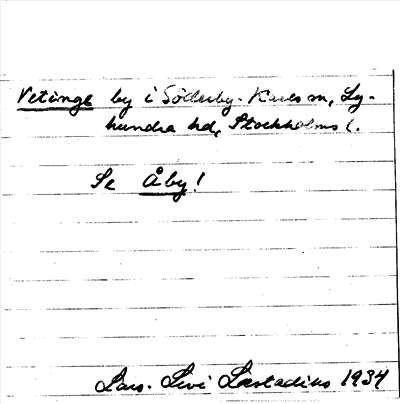 Vetinge by i Söderby-Karls sn, Ly-
hundra hd, Stockholms l.
Se Åby!
Lars. Levi Læstadius 1934